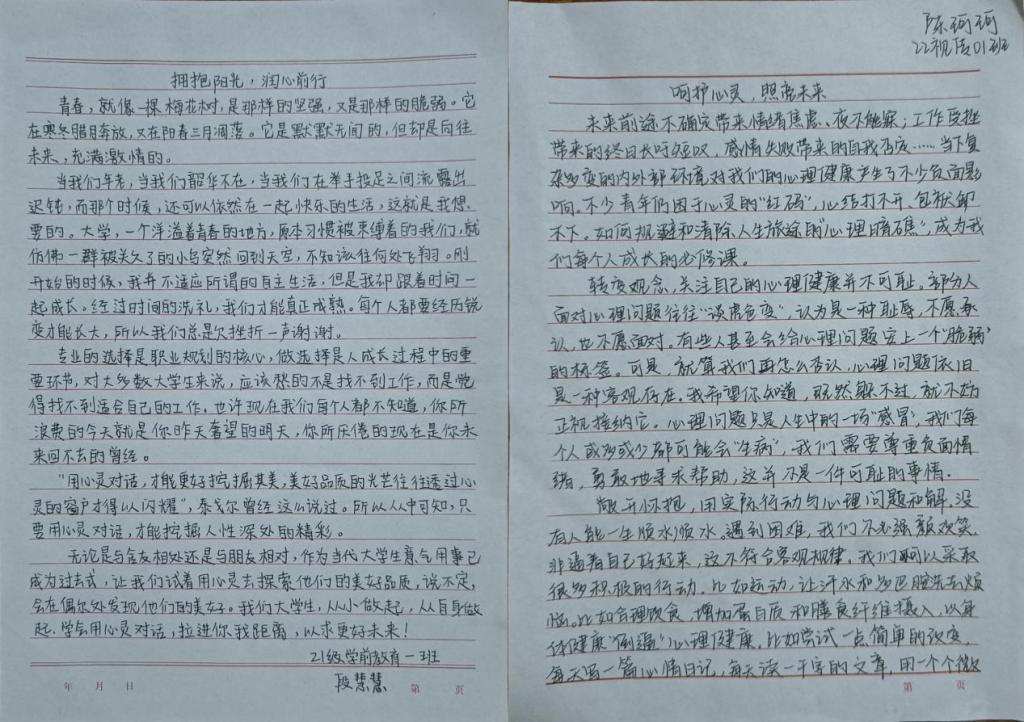 拥抱阳光，润心前行
青春，就像一棵梅花树，是那样的坚强，又是那样的脆弱。它
在寒冬腊月奔放，又在阳春三月凋落。它是默默无闻的，但却是向往
未来，充满激情的。
当我们年老，当我们韶华不在，当我们在举手投足之间流露出
迟钝，而那个时候，还可以依然在一起快乐的生活，这就是我想
要的。大学，一个洋溢着青春的地方，原本习惯被束缚着的我们，就
仿佛一群被关久了的小鸟突然回到天空，不知该往何处飞翔。刚
开始的时候，我并不适应所谓的自主生活，但是我却跟着时间一
起成长。经过时间的洗礼，我们才能真正成熟。每个人都要经历锐
变才能长大，所以我们总是欠挫折一声谢谢。
专业的选择是职业规划的核心，做选择是人成长过程中的重
要环节，对大多数大学生来说，应该愁的不是找不到工作，而是觉
得找不到适合自己的工作。也许现在我们每个人都不知道，你所
浪费的今天就是你昨天奢望的明天，你所厌倦的现在是你未
来回不去的曾经。
“用心灵对话，才能更好挖掘其美，美好品质的光芒往往透过心
灵的窗户才得以闪耀”，泰戈尔曾经这么说过。所以从中可知，只
要用心灵对话，才能挖掘人性深处的精彩。
无论是与舍友相处还是与朋友相对，作为当代大学生意气用事已
成为过去式，让我们试着用心灵去探索他们的美好品质，说不定，
会在偶尔处发现他们的美好。我们大学生，从小做起，从自身做
起，学会用心灵对话，拉进你我距离，以求更好未来！
21级学前教育一班
段慧慧
年 月 日 第 页
陈珂珂
22视传01班
呵护心灵，照亮未来
未来前途不确定带来情绪焦虑、夜不能寐；工作受挫
带来的终日长吁短叹，感情失败带来的自我否定……当下复
杂多变的内外部环境对我们的心理健康产生了不少负面影
响。不少青年仍困于心灵的“红码”，心结打不开，包袱卸
不下。如何规避和清除人生旅途的“心理暗礁”，成为我
们每个人成长的必修课。
转变观念，关注自己的心理健康并不可耻。部分人
面对心理问题往往“谈虎色变”，认为是一种耻辱，不愿承
认，也不愿面对。有些人甚至会给心理问题安上一个“脆弱”
的标签。可是，就算我们再怎么否认，心理问题依旧
是一种客观存在。我希望你知道，既然躲不过，就不妨
正视接纳它。心理问题只是人生中的一场“感冒”，我们每
个人或多或少都可能会“生病”，我们需要尊重负面情
绪，勇敢地寻求帮助，这并不是一件可耻的事情。
敞开怀抱，用实际行动与心理问题和解。没
有人能一生顺水顺水。遇到困难，我们不必强颜欢笑，
非逼着自己好起来，这不符合客观规律。我们可以采取
很多积极的行动。比如运动，让汗水和多巴胺洗去烦
恼。比如合理饮食，增加蛋白质和膳食纤维摄入，以身
体健康“倒逼”心理健康。比如尝试一点简单的改变，
每天写一篇心情日记，每天读一千字的文章，用一个个微
第 页